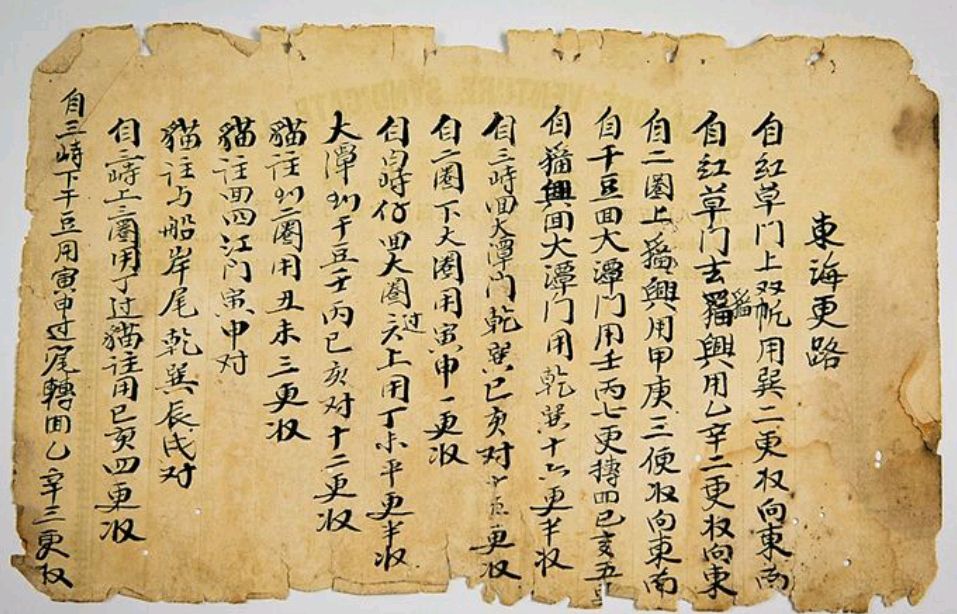 東海更路
自红草门上双帆用巽二更收向東南
自红草门去猫興用乙辛二更收向東
猫
自二圈上猫興用甲庚三便收向東南
自干豆回大潭门用壬丙七更轉四巳亥五
自猫興回大潭门用乾巽十六更半收
自三峙回大潭门乾巽巳亥对更收
自二圈下大圈用寅申一更收
自峙仔回大圈上用丁未平更半收
过
大潭刘干豆壬丙巳亥对十二更收
猫注刘二圈用丑未三更收
猫注四江门寅申对
猫注与船岸尾乾巽辰戌对
自三峙上三圈用丁过猫注用巳亥四更收
自三峙下干豆用寅申过尾轉回乙辛三更收
VENTURE SYNDICATE